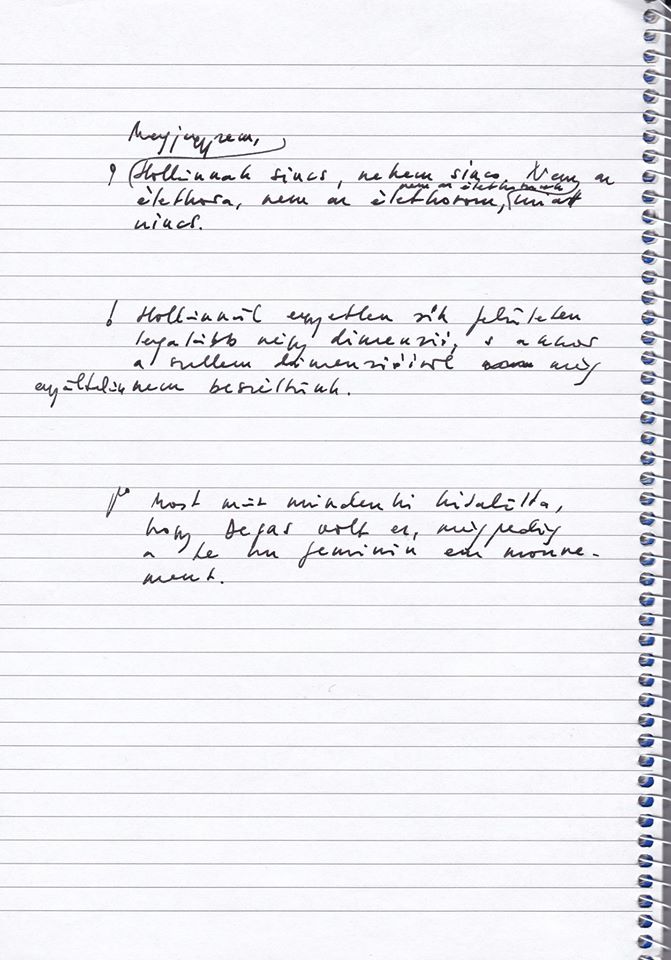 Megjegyzem,
Hollánnak sincs, nekem sincs. Nem az
életkora, nem az életkorom, miatt
nincs.
! Hollánnál egyetlen sík felületen
legalább négy dimenzió, s akkor
a szellem dimenzióiról még
egyáltalán nem beszéltünk.
Most már mindenki kitalálta,
hogy Degas volt ez, mégpedig
a le nu feminin en mouve-
ment.